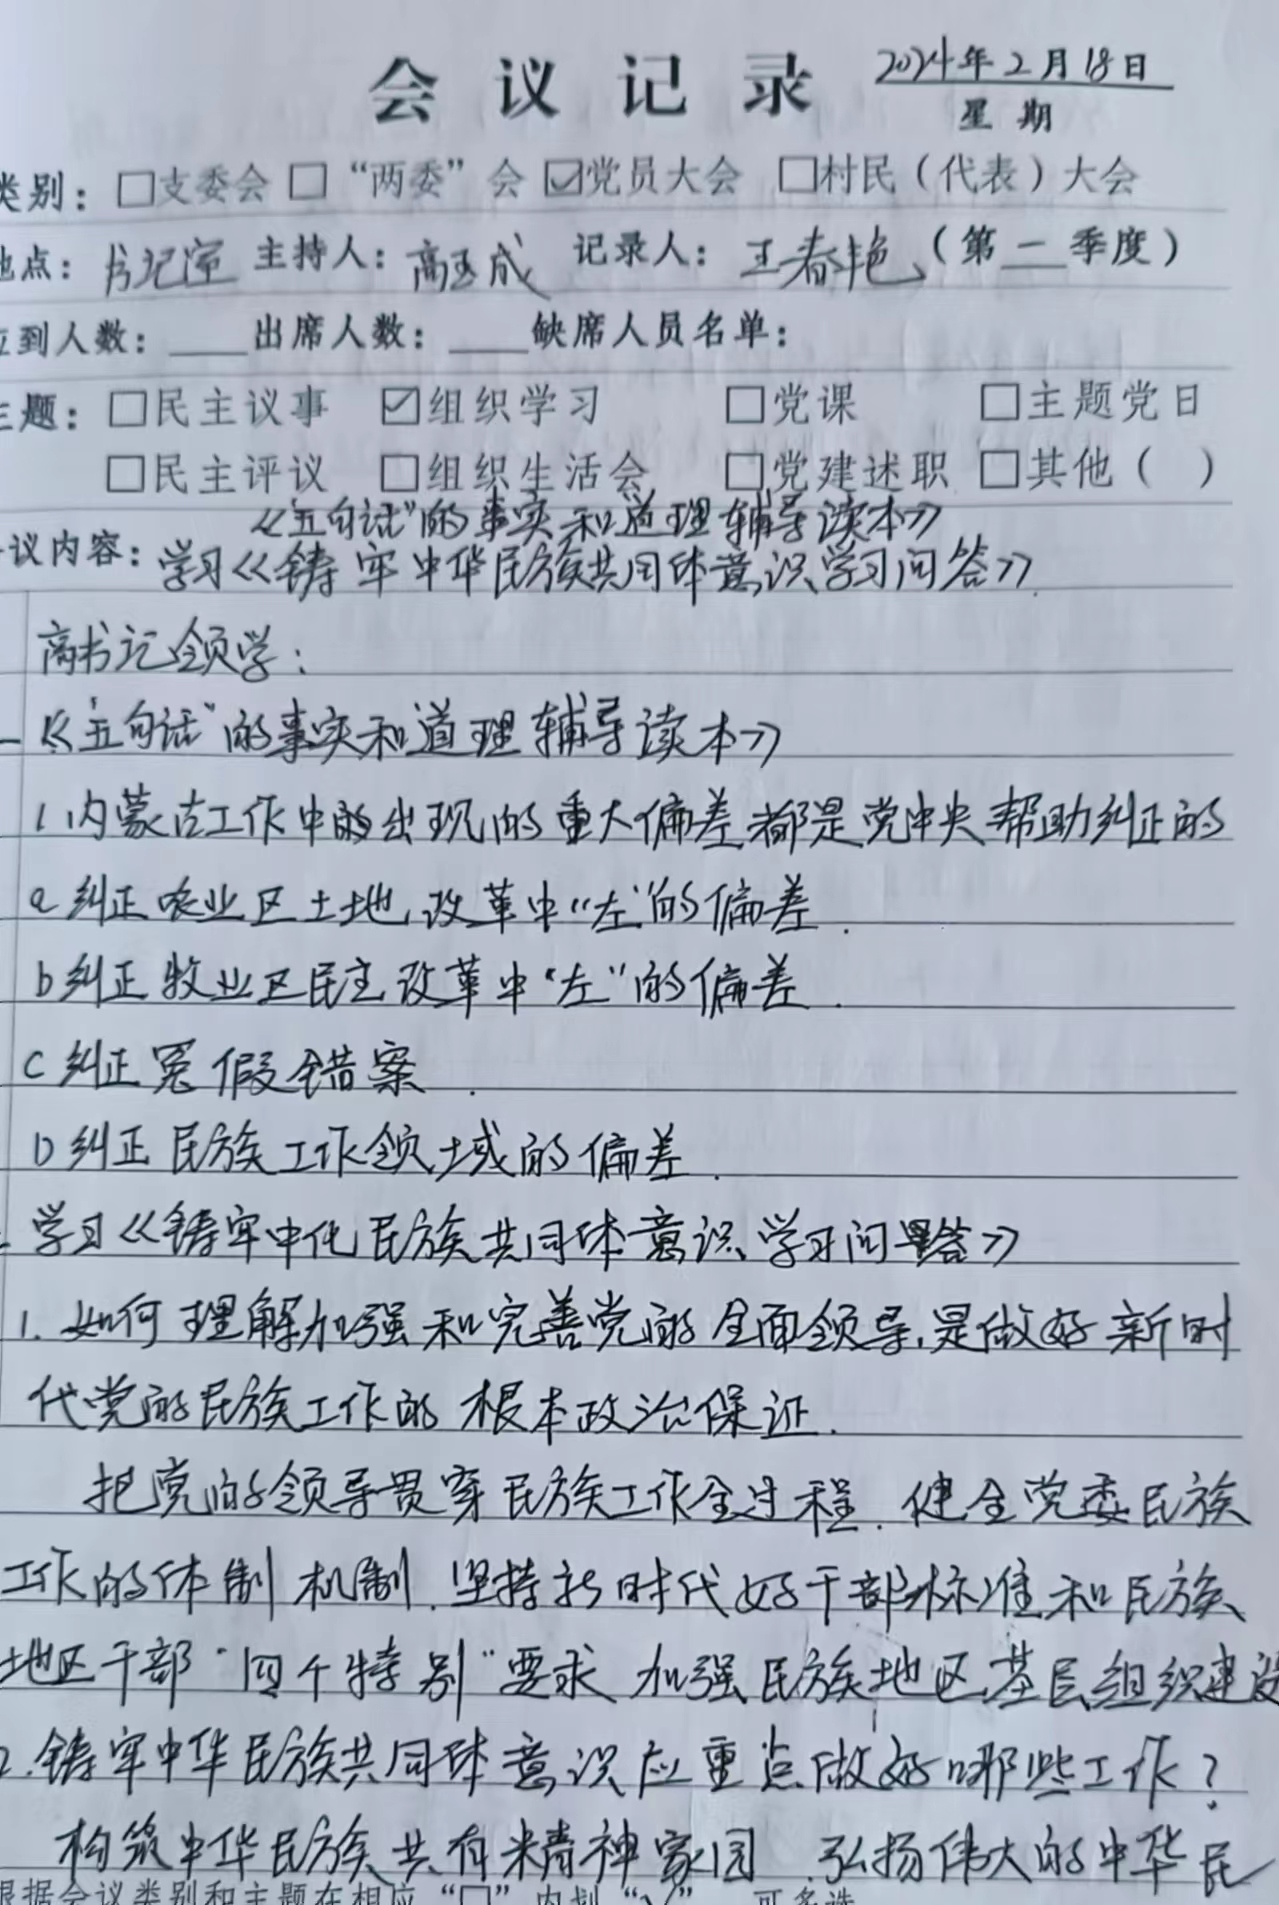 会议记录 2024年2月18日
星期
类别：□支委会 □“两委”会 ☑党员大会 □村民（代表）大会
地点：书记室 主持人：高玉成 记录人：王春艳（第一季度）
应到人数：____出席人数：____缺席人员名单：
主题：□民主议事 ☑组织学习 □党课 □主题党日
□民主评议 □组织生活会 □党建述职 □其他（ ）
《“五句话”的事实和道理辅导读本》
会议内容：学习《铸牢中华民族共同体意识学习问答》
高书记领学：
一《“五句话”的事实和道理辅导读本》
1.内蒙古工作中出现的重大偏差都是党中央帮助纠正的
a 纠正农业区土地改革中“左”的偏差.
b 纠正牧业区民主改革中“左”的偏差.
C 纠正冤假错案.
D 纠正民族工作领域的偏差.
学习《铸牢中化民族共同体意识学习问答》
1.如何理解加强和完善党的全面领导,是做好新时
代党的民族工作的根本政治保证.
把党的领导贯穿民族工作全过程.健全党委民族
工作的体制机制.坚持新时代好干部标准和民族
地区干部“四个特别”要求 加强民族地区基层组织建设
2.铸牢中华民族共同体意识应重点做好哪些工作?
构筑中华民族共有精神家园.弘扬伟大的中华民
根据会议类别和主题在相应“□”内划“√”，可多选